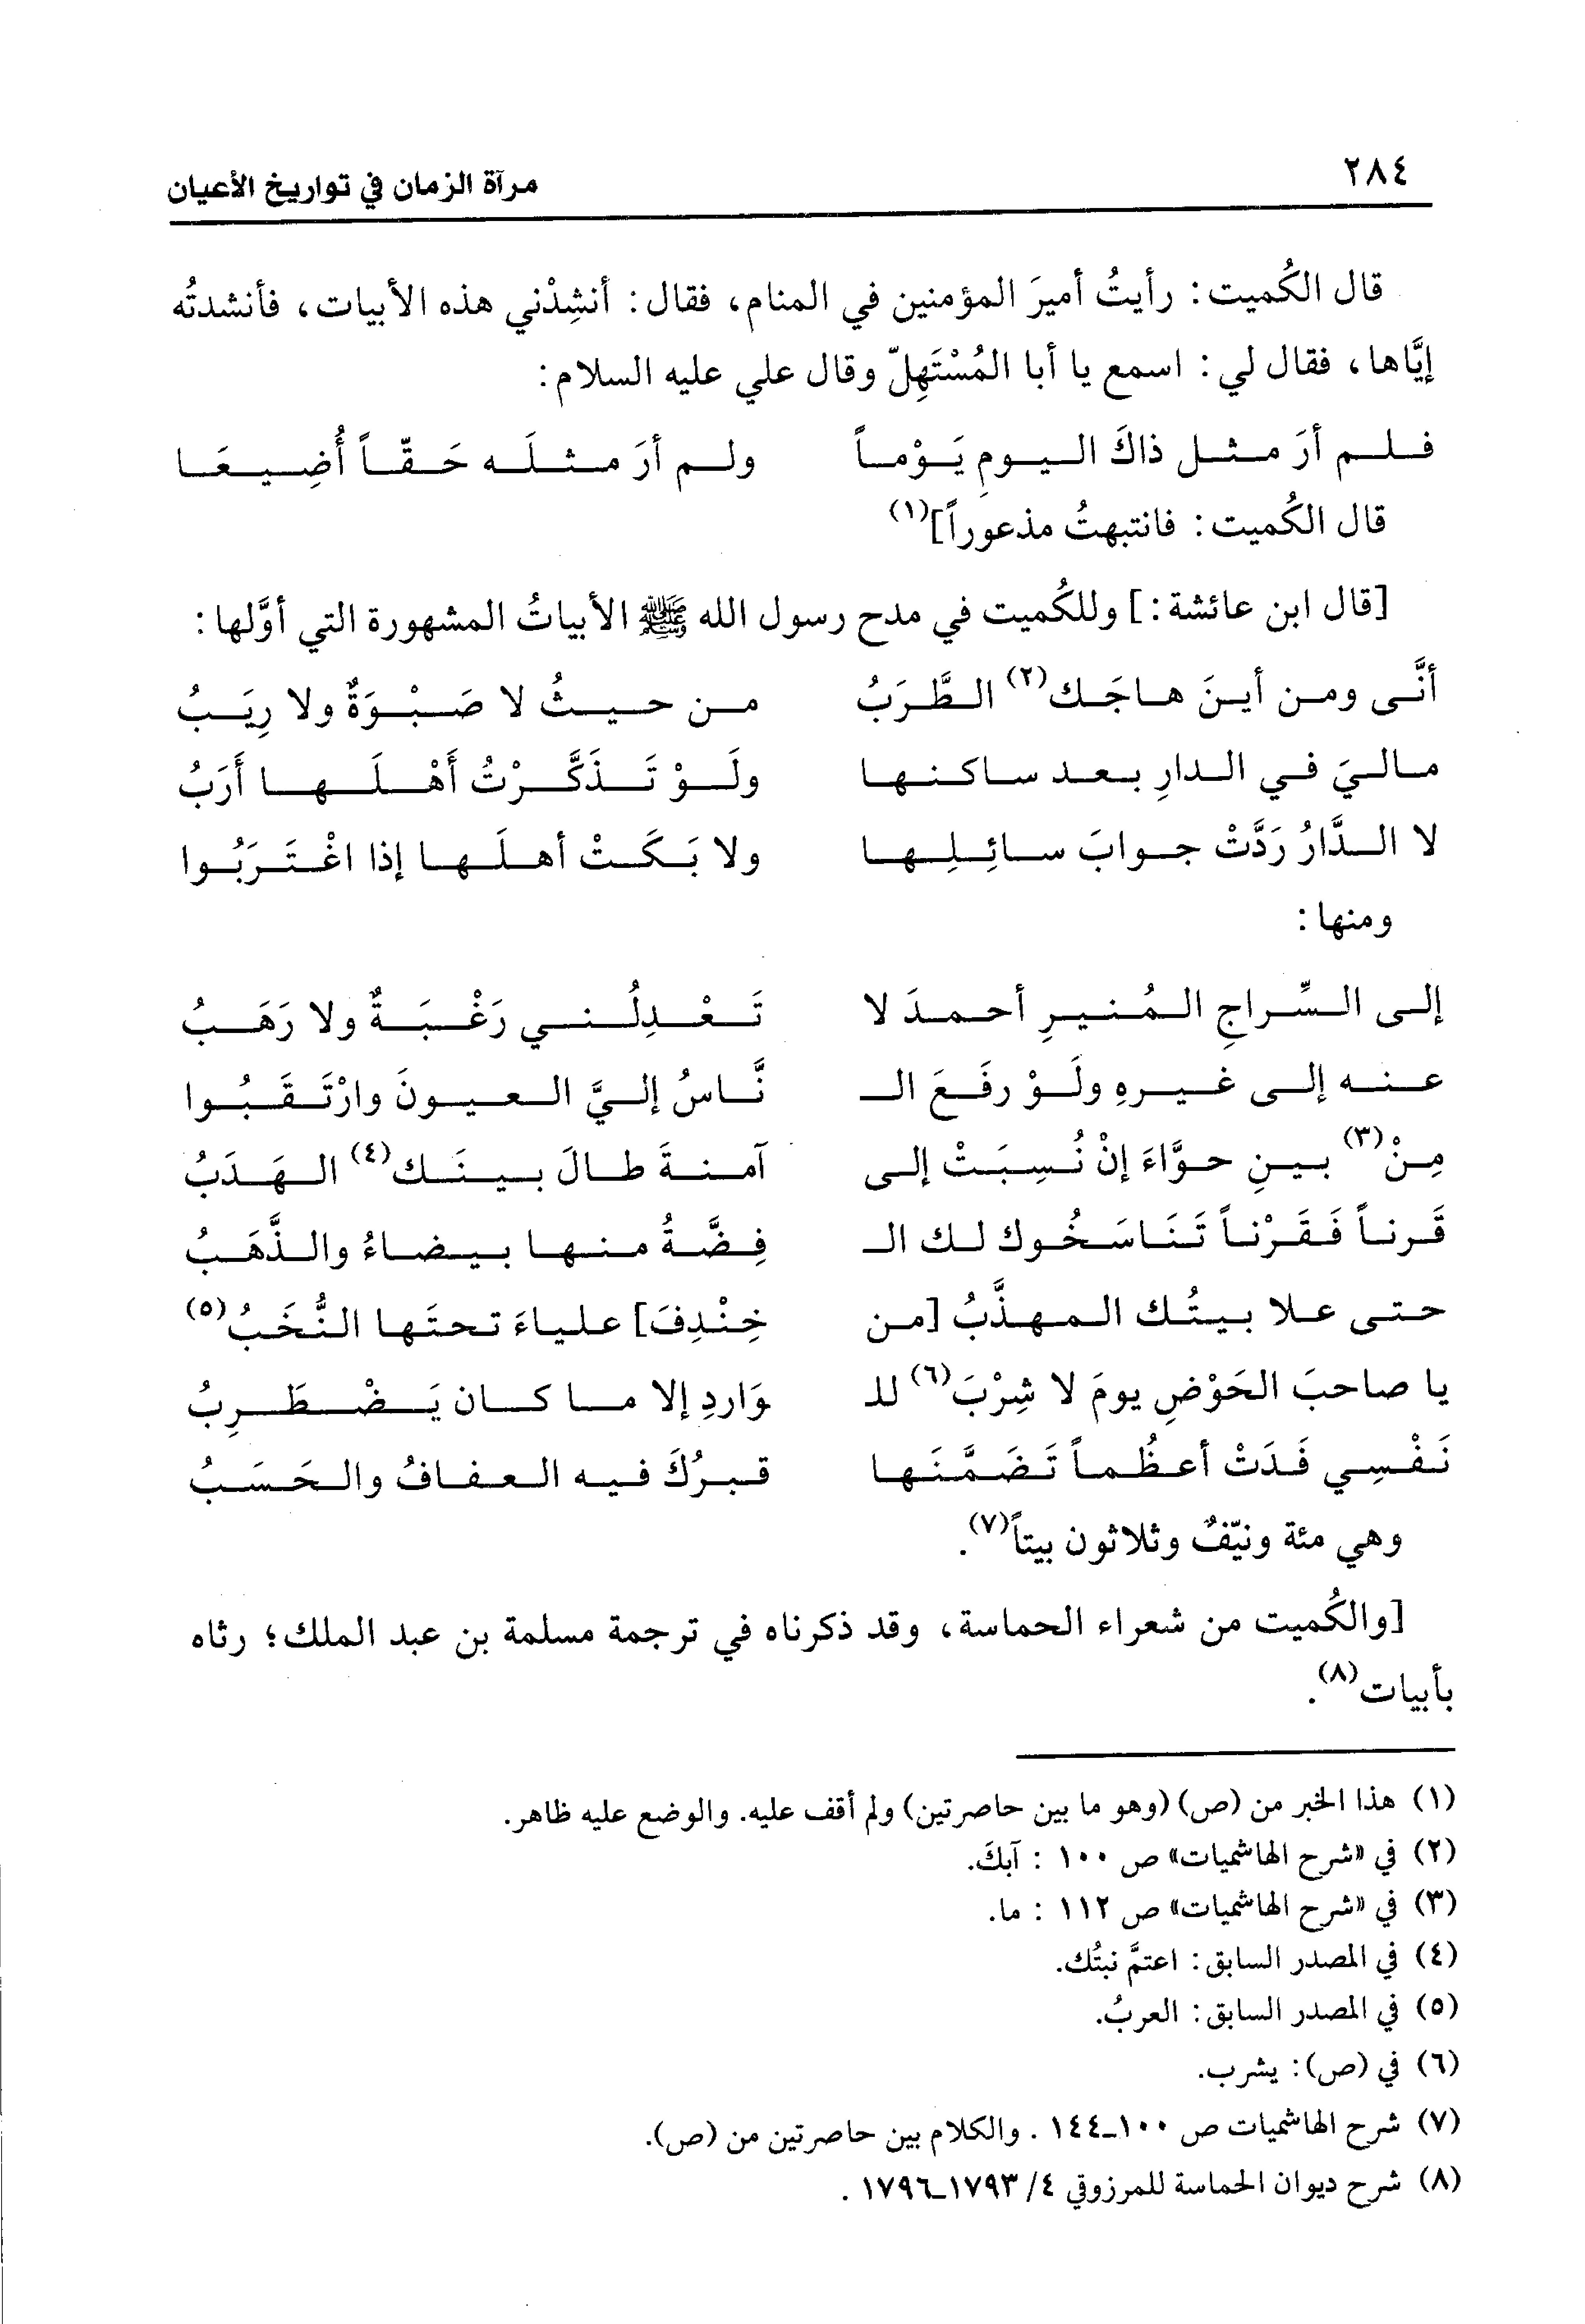 ٢٨٤ مرآة الزمان في تواريخ الأعيان
قال الكُميت: رأيتُ أميرَ المؤمنين في المنام، فقال: أنشِدْني هذه الأبيات، فأنشدتُه
إيَّاها، فقال لي: اسمع يا أبا المُسْتَهِلّ وقال علي عليه السلام:
فلم أرَ مثل ذاكَ اليومِ يَوْماً ولم أرَ مثلَه حَقّاً أُضِيعَا
قال الكُميت: فانتبهتُ مذعوراً](١)
[قال ابن عائشة:] وللكُميت في مدح رسول الله ﷺ الأبياتُ المشهورة التي أوَّلها:
أنَّى ومن أينَ هاجَك(٢) الطَّرَبُ من حيثُ لا صَبْوَةٌ ولا رِيَبُ
ماليَ في الدارِ بعد ساكنها ولَوْ تَذَكَّرْتُ أَهْلَها أَرَبُ
لا الدَّارُ رَدَّتْ جوابَ سائِلِها ولا بَكَتْ أهلَها إذا اغْتَرَبُوا
ومنها:
إلى السِّراجِ المُنيرِ أحمدَ لا تَعْدِلُني رَغْبَةٌ ولا رَهَبُ
عنه إلى غيرهِ ولَوْ رفَعَ الـ نَّاسُ إليَّ العيونَ وارْتَقَبُوا
مِنْ(٣) بينِ حوَّاءَ إنْ نُسِبَتْ إلى آمنةَ طالَ بينَك(٤) الهَدَبُ
قَرناً فَقَرْناً تَنَاسَخُوك لك الـ فِضَّةُ منها بيضاءُ والذَّهَبُ
حتى علا بيتُك المهذَّبُ [من خِنْدِفَ] علياءَ تحتَها النُّخَبُ(٥)
يا صاحبَ الحَوْضِ يومَ لا شِرْبَ(٦) للـ وَاردِ إلا ما كان يَضْطَرِبُ
نَفْسِي فَدَتْ أعظُماً تَضَمَّنَها قبرُكَ فيه العفافُ والحَسَبُ
وهي مئة ونيّفٌ وثلاثون بيتاً(٧).
[والكُميت من شعراء الحماسة، وقد ذكرناه في ترجمة مسلمة بن عبد الملك؛ رثاه
بأبيات(٨).
(١) هذا الخبر من (ص) (وهو ما بين حاصرتين) ولم أقف عليه. والوضع عليه ظاهر.
(٢) في «شرح الهاشميات» ص ١٠٠ : آبكَ.
(٣) في «شرح الهاشميات» ص ١١٢ : ما.
(٤) في المصدر السابق: اعتمَّ نبتُك.
(٥) في المصدر السابق: العربُ.
(٦) في (ص): يشرب.
(٧) شرح الهاشميات ص ١٠٠ـ١٤٤ . والكلام بين حاصرتين من (ص).
(٨) شرح ديوان الحماسة للمرزوقي ٤/ ١٧٩٣ـ١٧٩٦ .